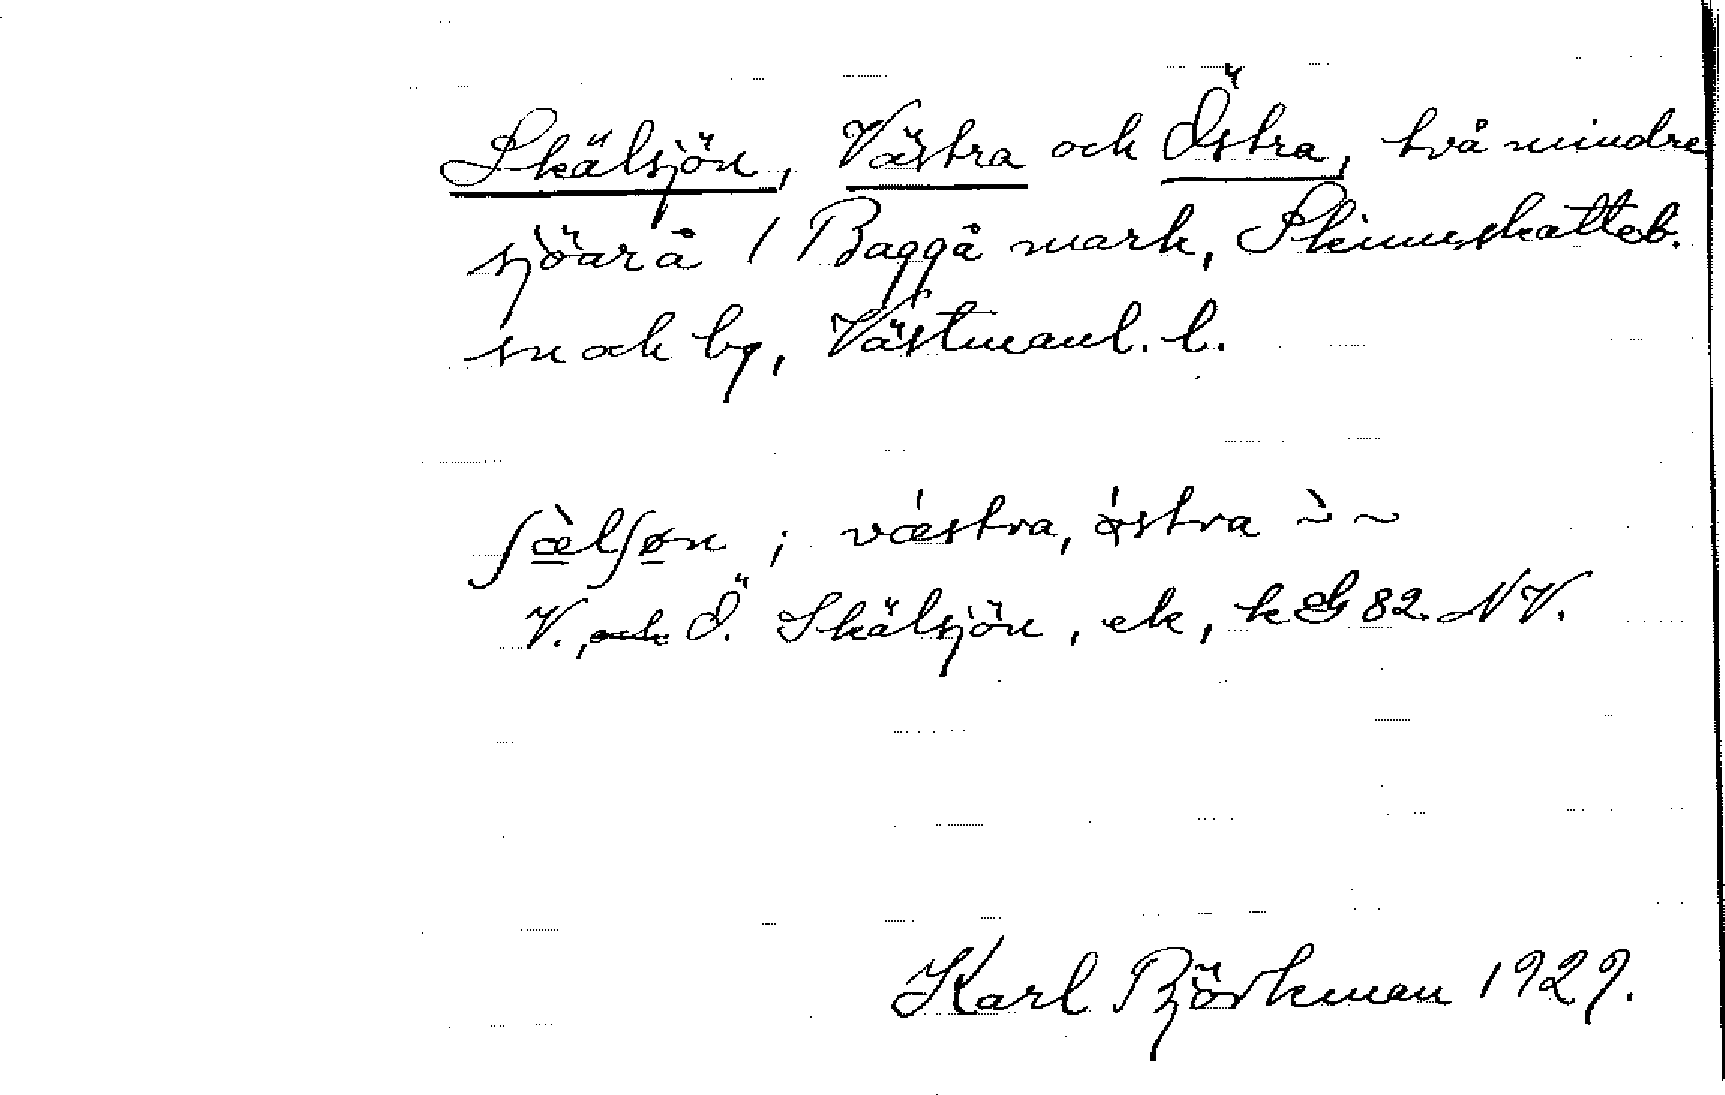 Skälsjön, Västra och Östra, två mindre
sjöar å / Baggå mark, Skinnskatteb.
sn och bg, Västmanl. l.
ʃæ̀lʃøn ; vǽstra, ǿstra ~̀ ~
V., och Ö. Skälsjön, ek, k G 82 NV.
Karl Björkman 1929.